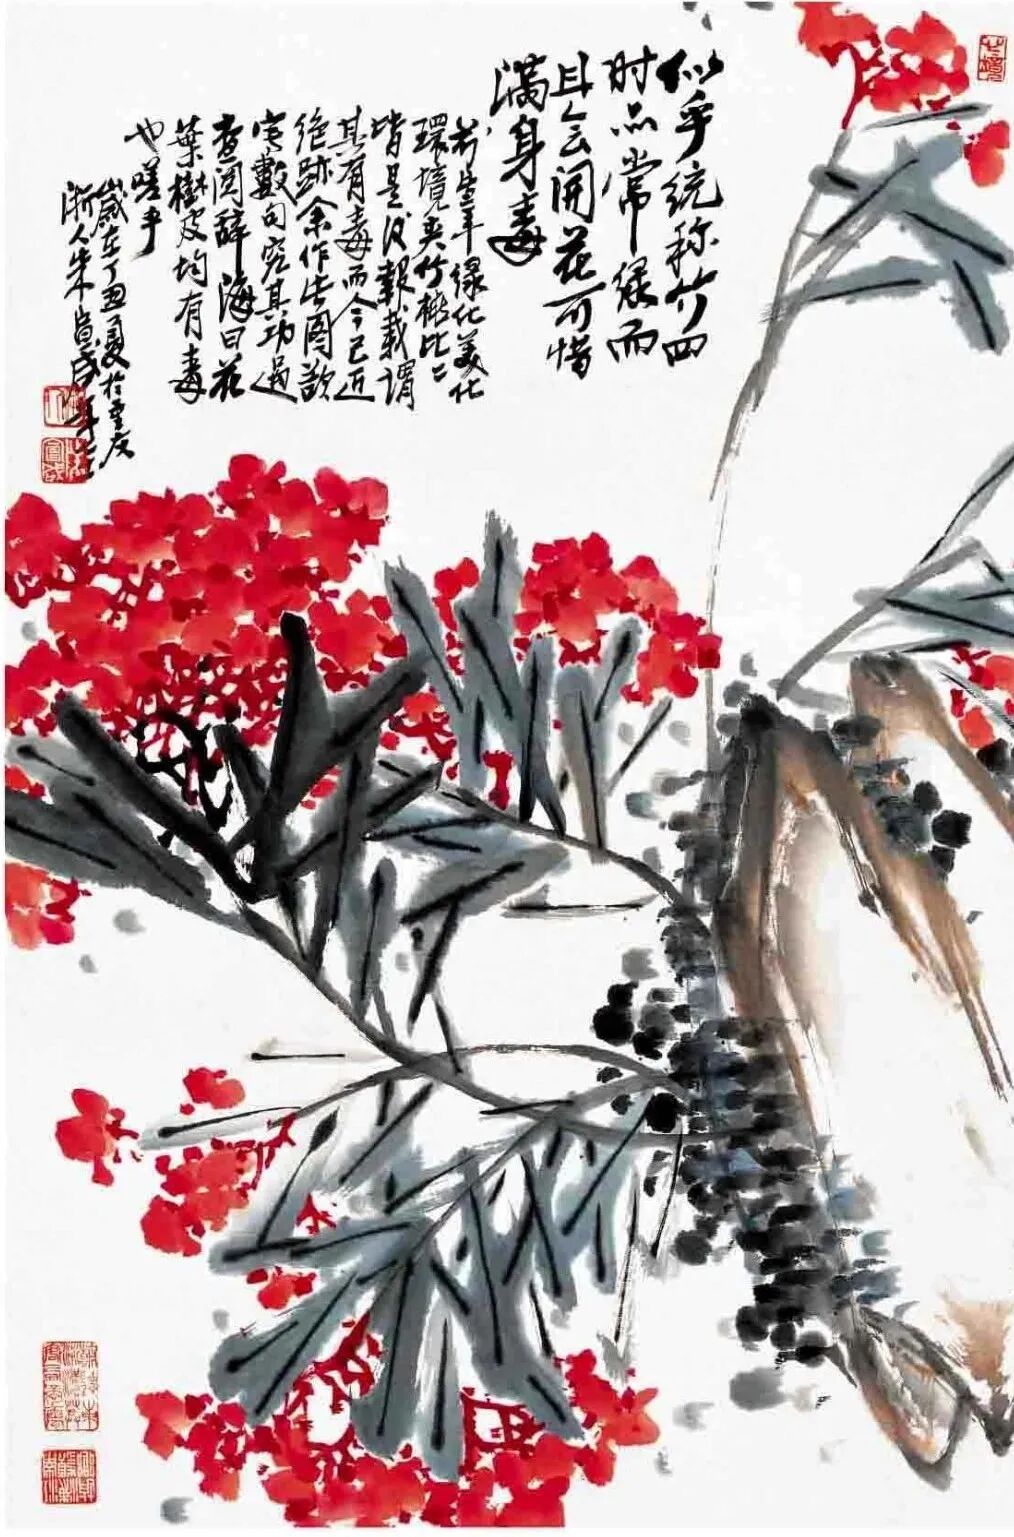 似乎统称竹四
时品常绿而
且会开花可惜
满身毒
前些年绿化美化
環境夹竹桃比比
皆是後報载谓
其有毒而今已近
绝跡余作此图欲
寫數句究其功過
查阅辞海曰花
葉樹皮均有毒
也嗟乎
歲在丁丑夏於重庆
浙人朱宣咸年